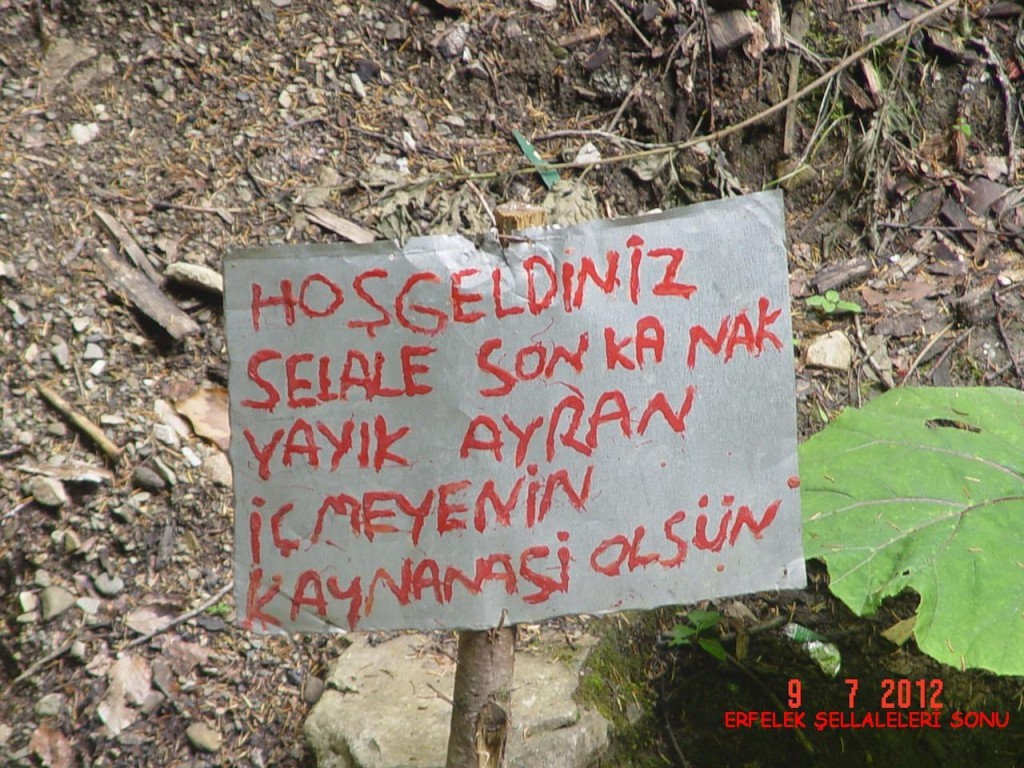 HOŞGELDİNİZ
SELALE SON KA NAK
YAYIK AYRAN
İÇMEYENİN
KAYNANAŞİ OLSÜN
9 7 2012
ERFELEK ŞELLALELERİ SONU